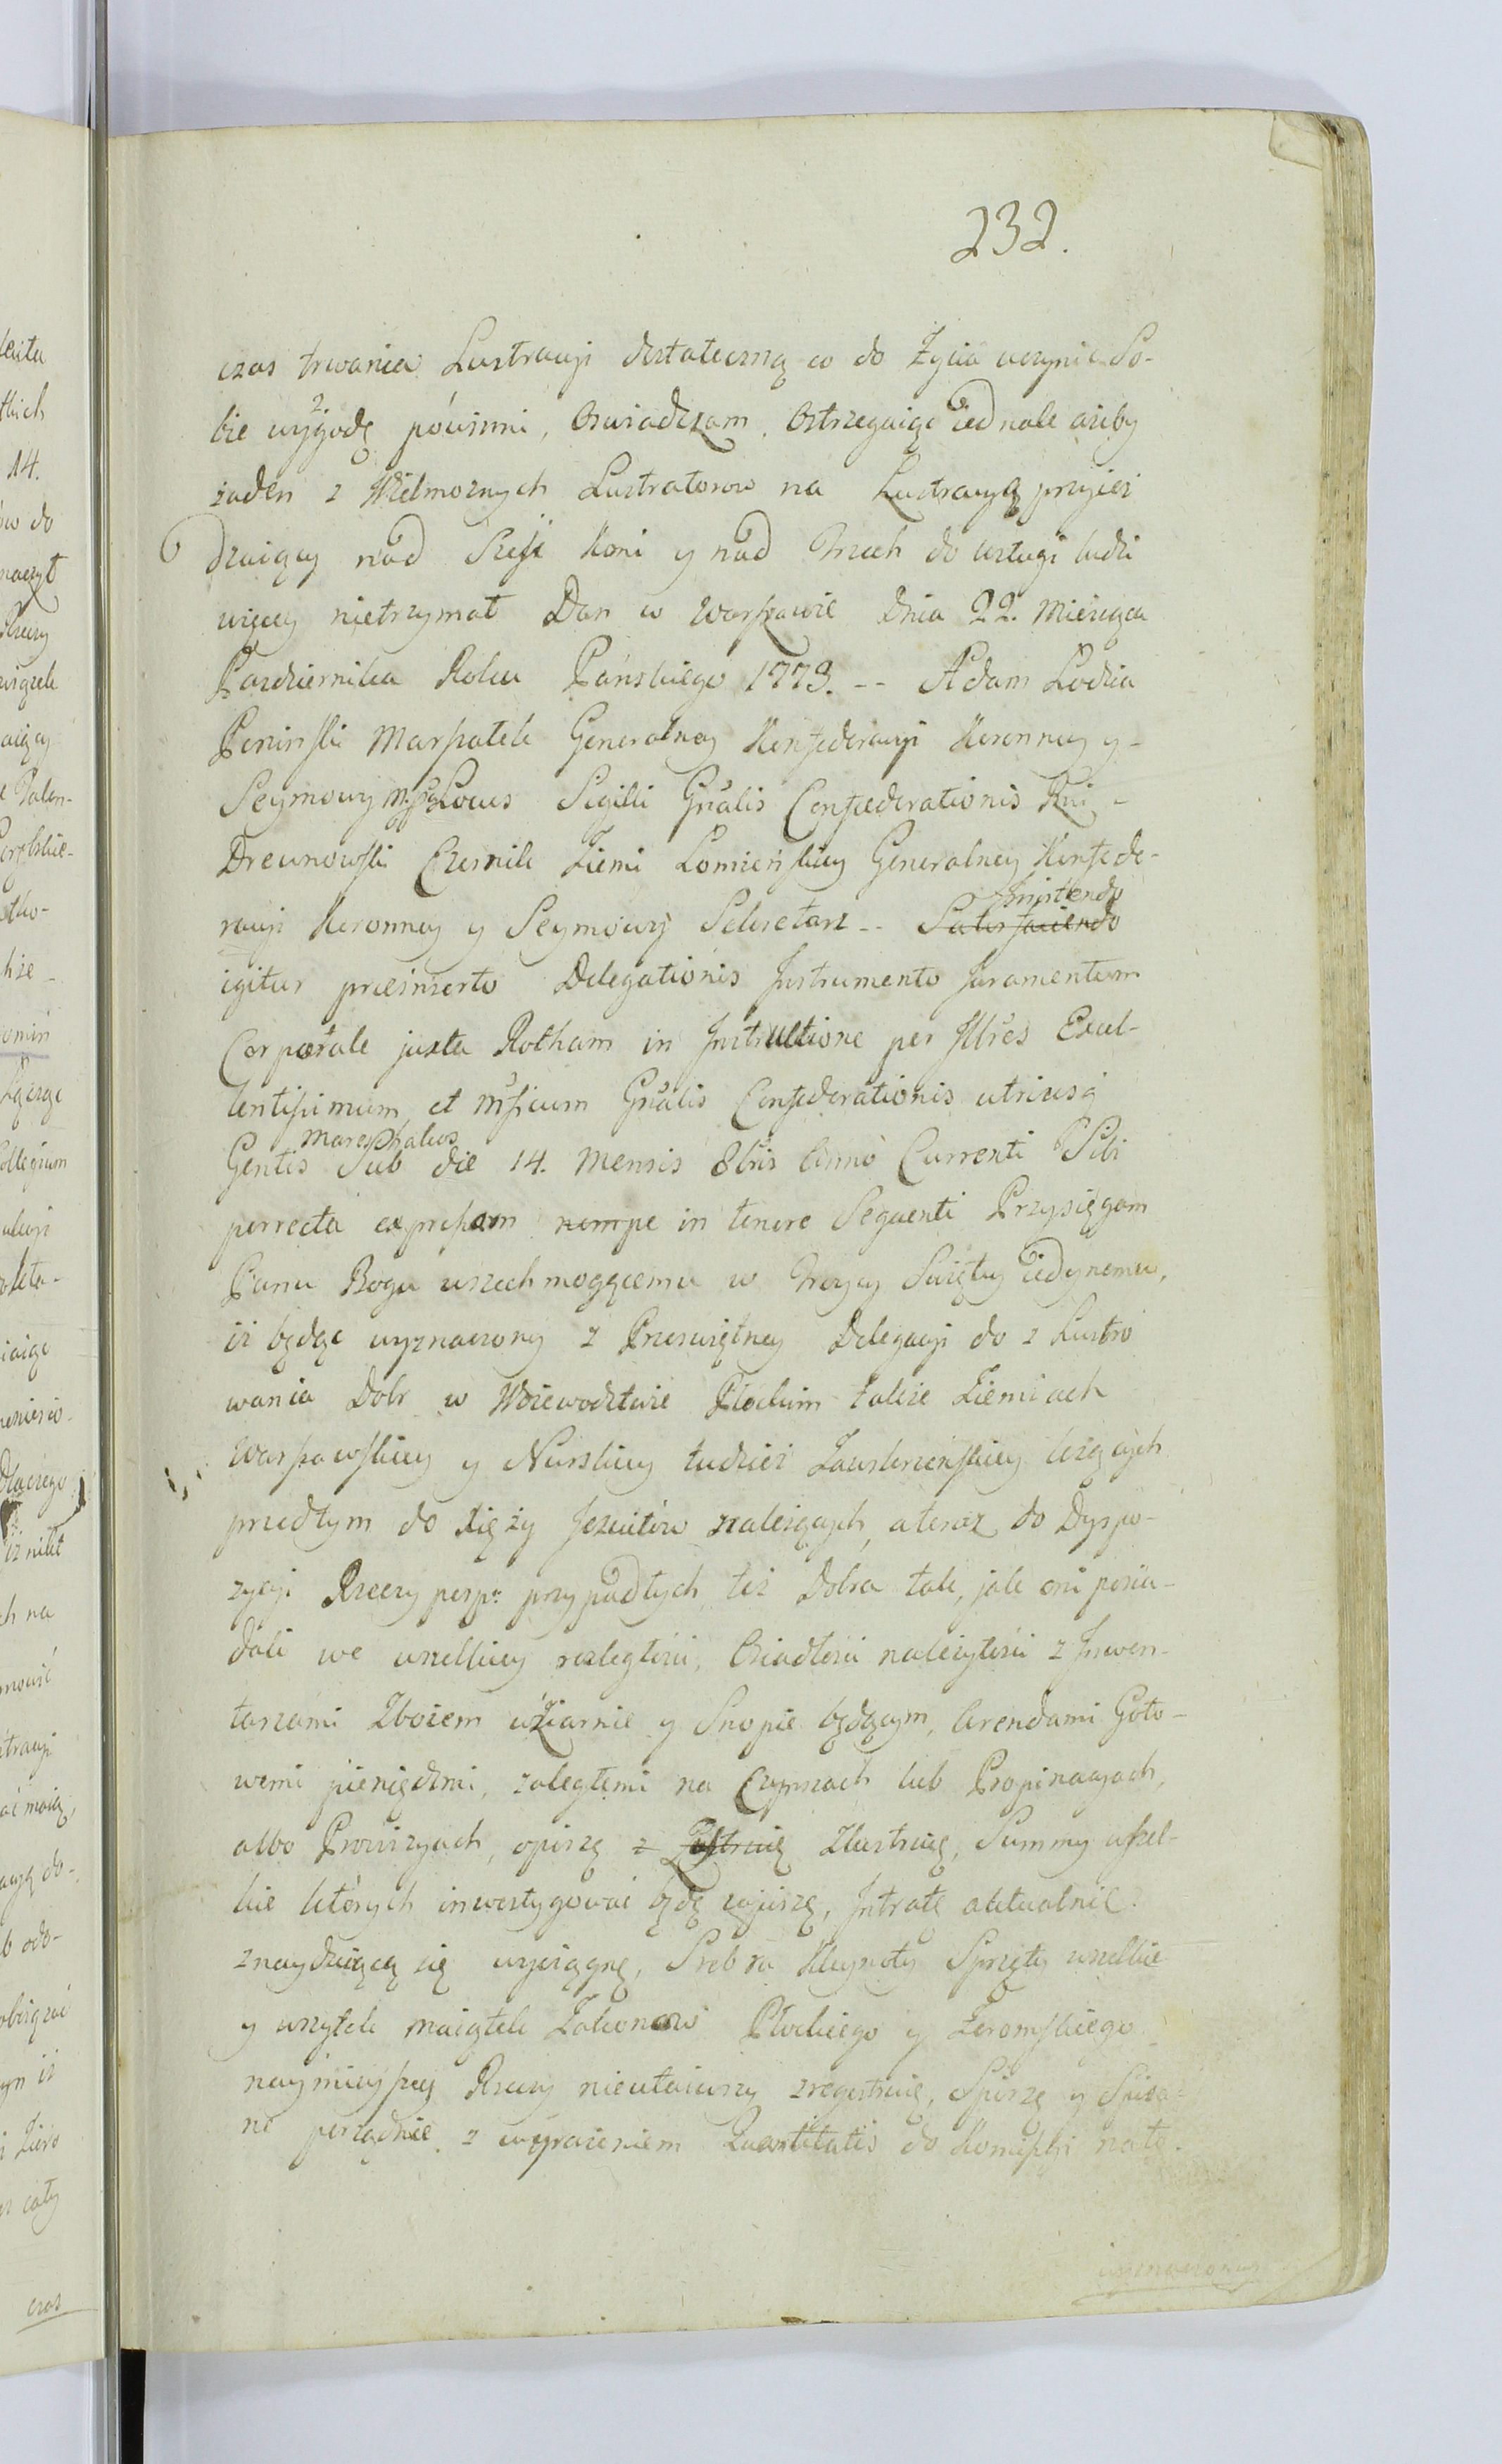 232.
czas trwania Lustracyi dostateczną co do Życia uczynić So-
bie wygodę powinni, Oswiadczam. Ostrzegaiąc iednak ażeby
żaden z Wielmożnych Lustratorow na Lustracyą przyież
dzaiący nad Sześć Koni y nad Trzech do usługi ludzi
więcey nietrzymał Dan w Warszawie Dnia 22. Miesiąca
Pazdziernika Roku Pańskiego 1773. -- Adam Łodzia
Poninski Marszałek Generalney Konfederacyi Koronney y -
Seymowy mp Locus Sigilli Gnalis Confœderationis Rni -
Drewnowski Czesnik Ziemi Łomżeńskiey Generalney Konfede-
racyi Koronney y Seymowy Sekretarz -- Satisfaciendo
Insistendo
igitur præinserto Delegationis Instrumento Juramentum
Corporale juxta Rotham in Instructione per Illres Excel-
lentissimum, et Mficum Gnalis Confederationis utriusq
Mareschalcos
Gentis Sub die 14. Mensis 8bris Anno Currenti Sibi
porrecta expressam nempe in tenore Sequenti Przysięgam
Panu Bogu wszechmogącemu w Troycy Swiętey iedynemu,
iż będąc wyznaczony z Przeświętney Delegacyi do z Lustro
wania Dobr w Woiewodztwie Płockim także Ziemiach
Warszawskiey y Nurskiey tudzież Zawkrzeńskiey leżących
przedtym do Xięży Jezuitów należących, a teraz do Dyspo-
zycyi Rzeczypospr przypadłych, też Dobra tak, jak oni posia-
dali we wszelkiey rozległości, Osiadłości należytości z Inwen-
tarzami Zbożem w Ziarnie y Snopie będącym, Arendami Goto-
wemi pieniędzmi, zaległemi na Czynszach lub Propinacyach,
albo Prowizyach, opiszę z Zlustruię, Summy wszel-
kie których inwestygować będę wpiszę, Intratę aktualnie
znayduiącą się wyciągnę, Srebra Kleynoty Sprzęty wszelkie
y wszytek maiątek Zakonow Płockiego y Zeromskiego
naymnieyszey Rzeczy nieutaiwszy zregestruię, Spiszę y Spisa-
ne porządnie z wyrażeniem Quantitatis do Komissyi na tę.
wyznaczoney